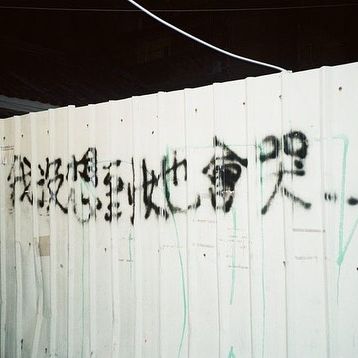 我沒想到她會哭...